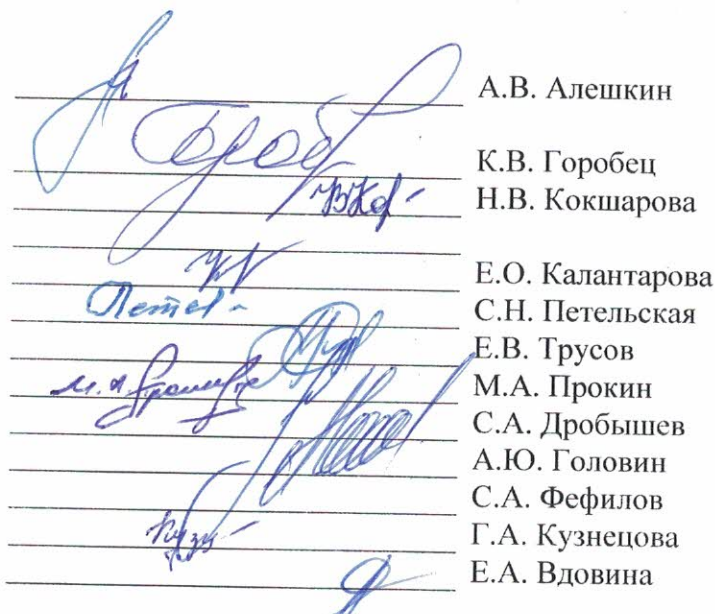 А.В. Алешкин
К.В. Горобец
Н.В. Кокшарова
Е.О. Калантарова
С.Н. Петельская
Е.В. Трусов
М.А. Прокин
С.А. Дробышев
А.Ю. Головин
С.А. Фефилов
Г.А. Кузнецова
Е.А. Вдовина